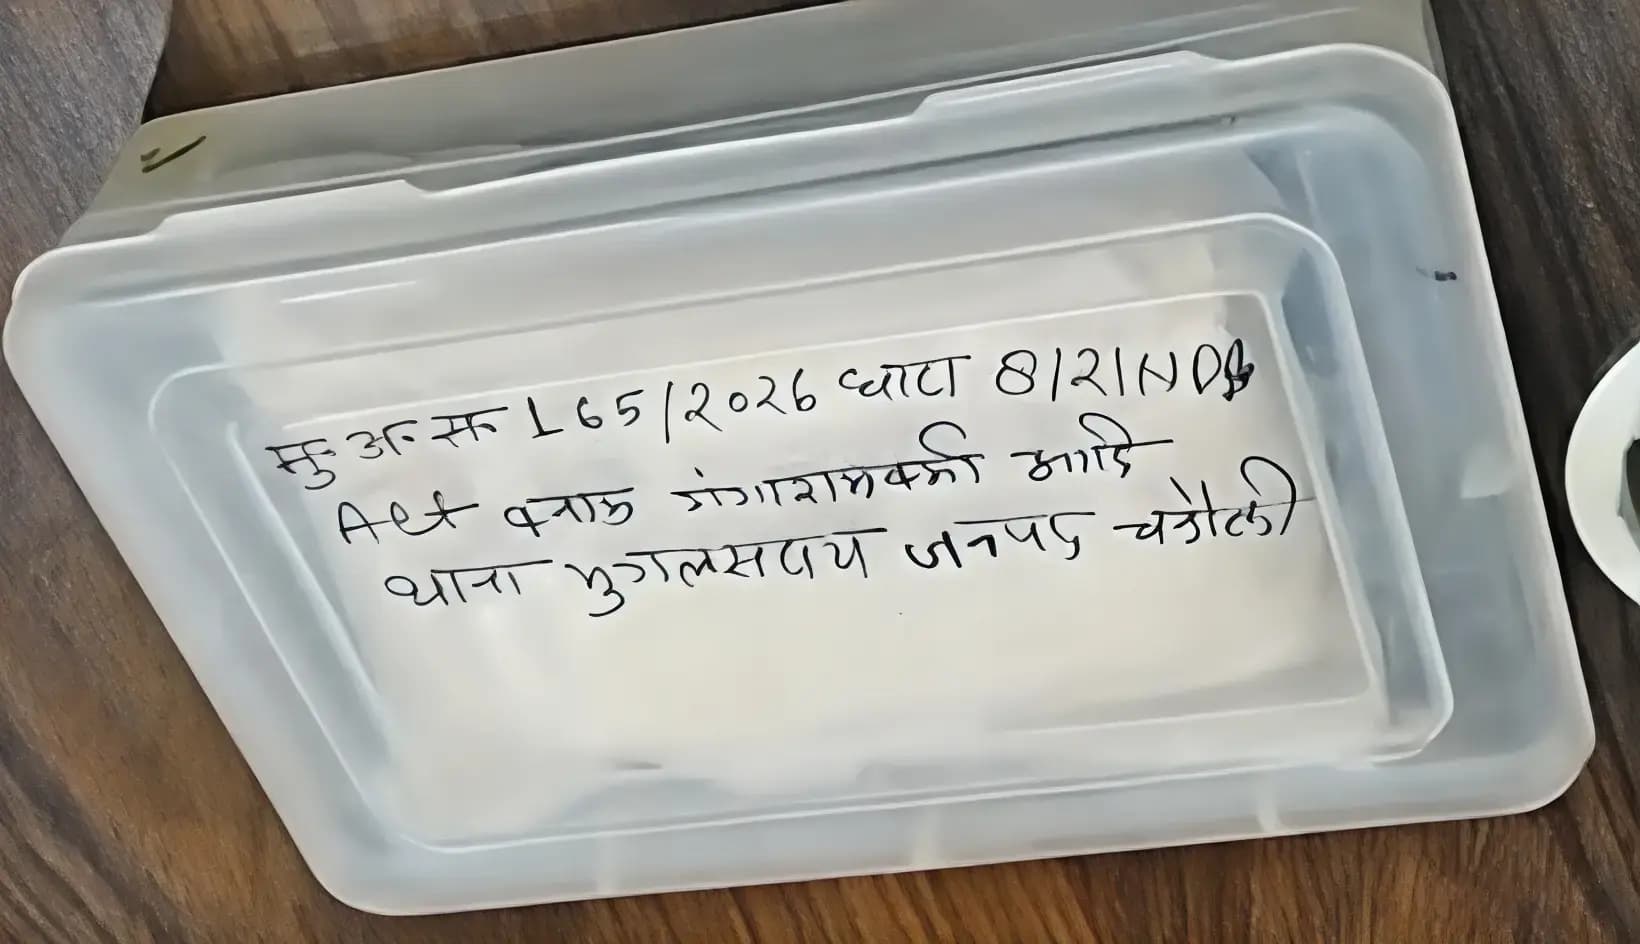 मु० अ० स० 165/2026 धारा 8/21 NDPS
Act बनाम गंगाराम वर्मा आदि
थाना मुगलसराय जनपद चंदौली